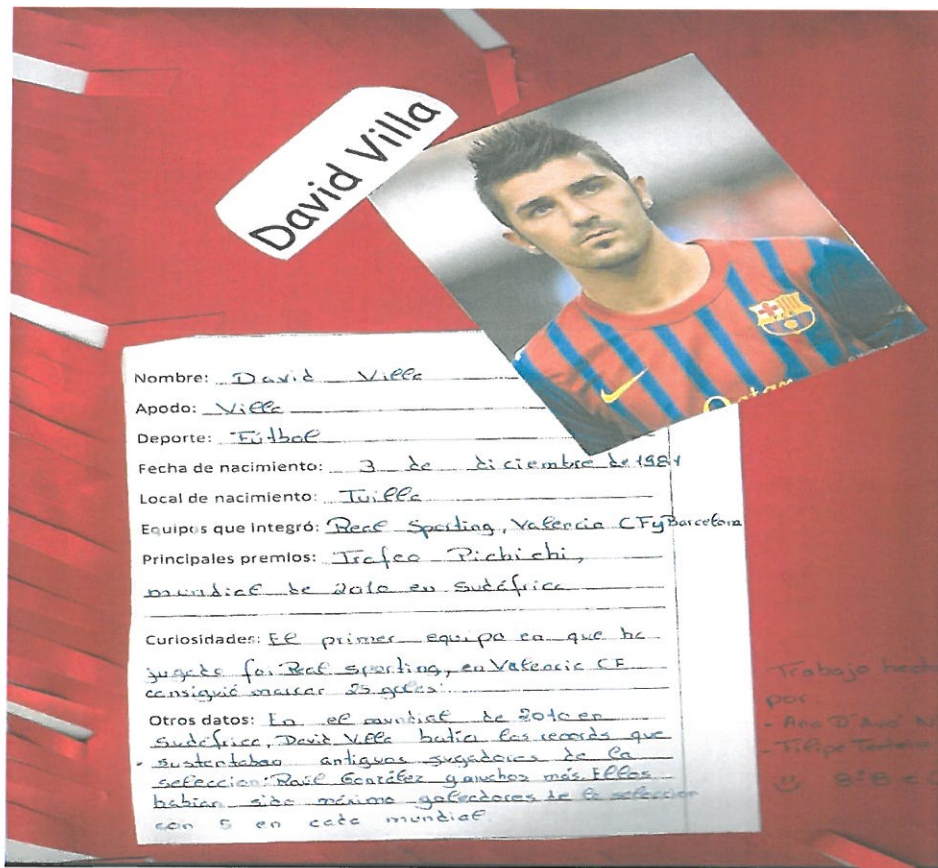 David Villa
Qatar
Nombre: David Villa
Apodo: Villa
Deporte: Fútbol
Fecha de nacimiento: 3 de diciembre de 1981
Local de nacimiento: Tuilla
Equipos que integró: Real Sporting, Valencia CF y Barcelona
Principales premios: Trofeo Pichichi,
mundial de 2010 en Sudáfrica
Curiosidades: El primer equipo en que ha
jugado foi Real Sporting, en Valencia CF
consiguió marcar 25 goles.
Otros datos: En el mundial de 2010 en
Sudáfrica, David Villa batía los records que
sustentabao antiguos jugadores de la
seleccion: Raúl González y muchos más. Ellos
habian sido máximo goleadores de la seleccion
con 5 en cada mundial.
Trabajo
por:
- Ana D'
- Filipe
8º B e